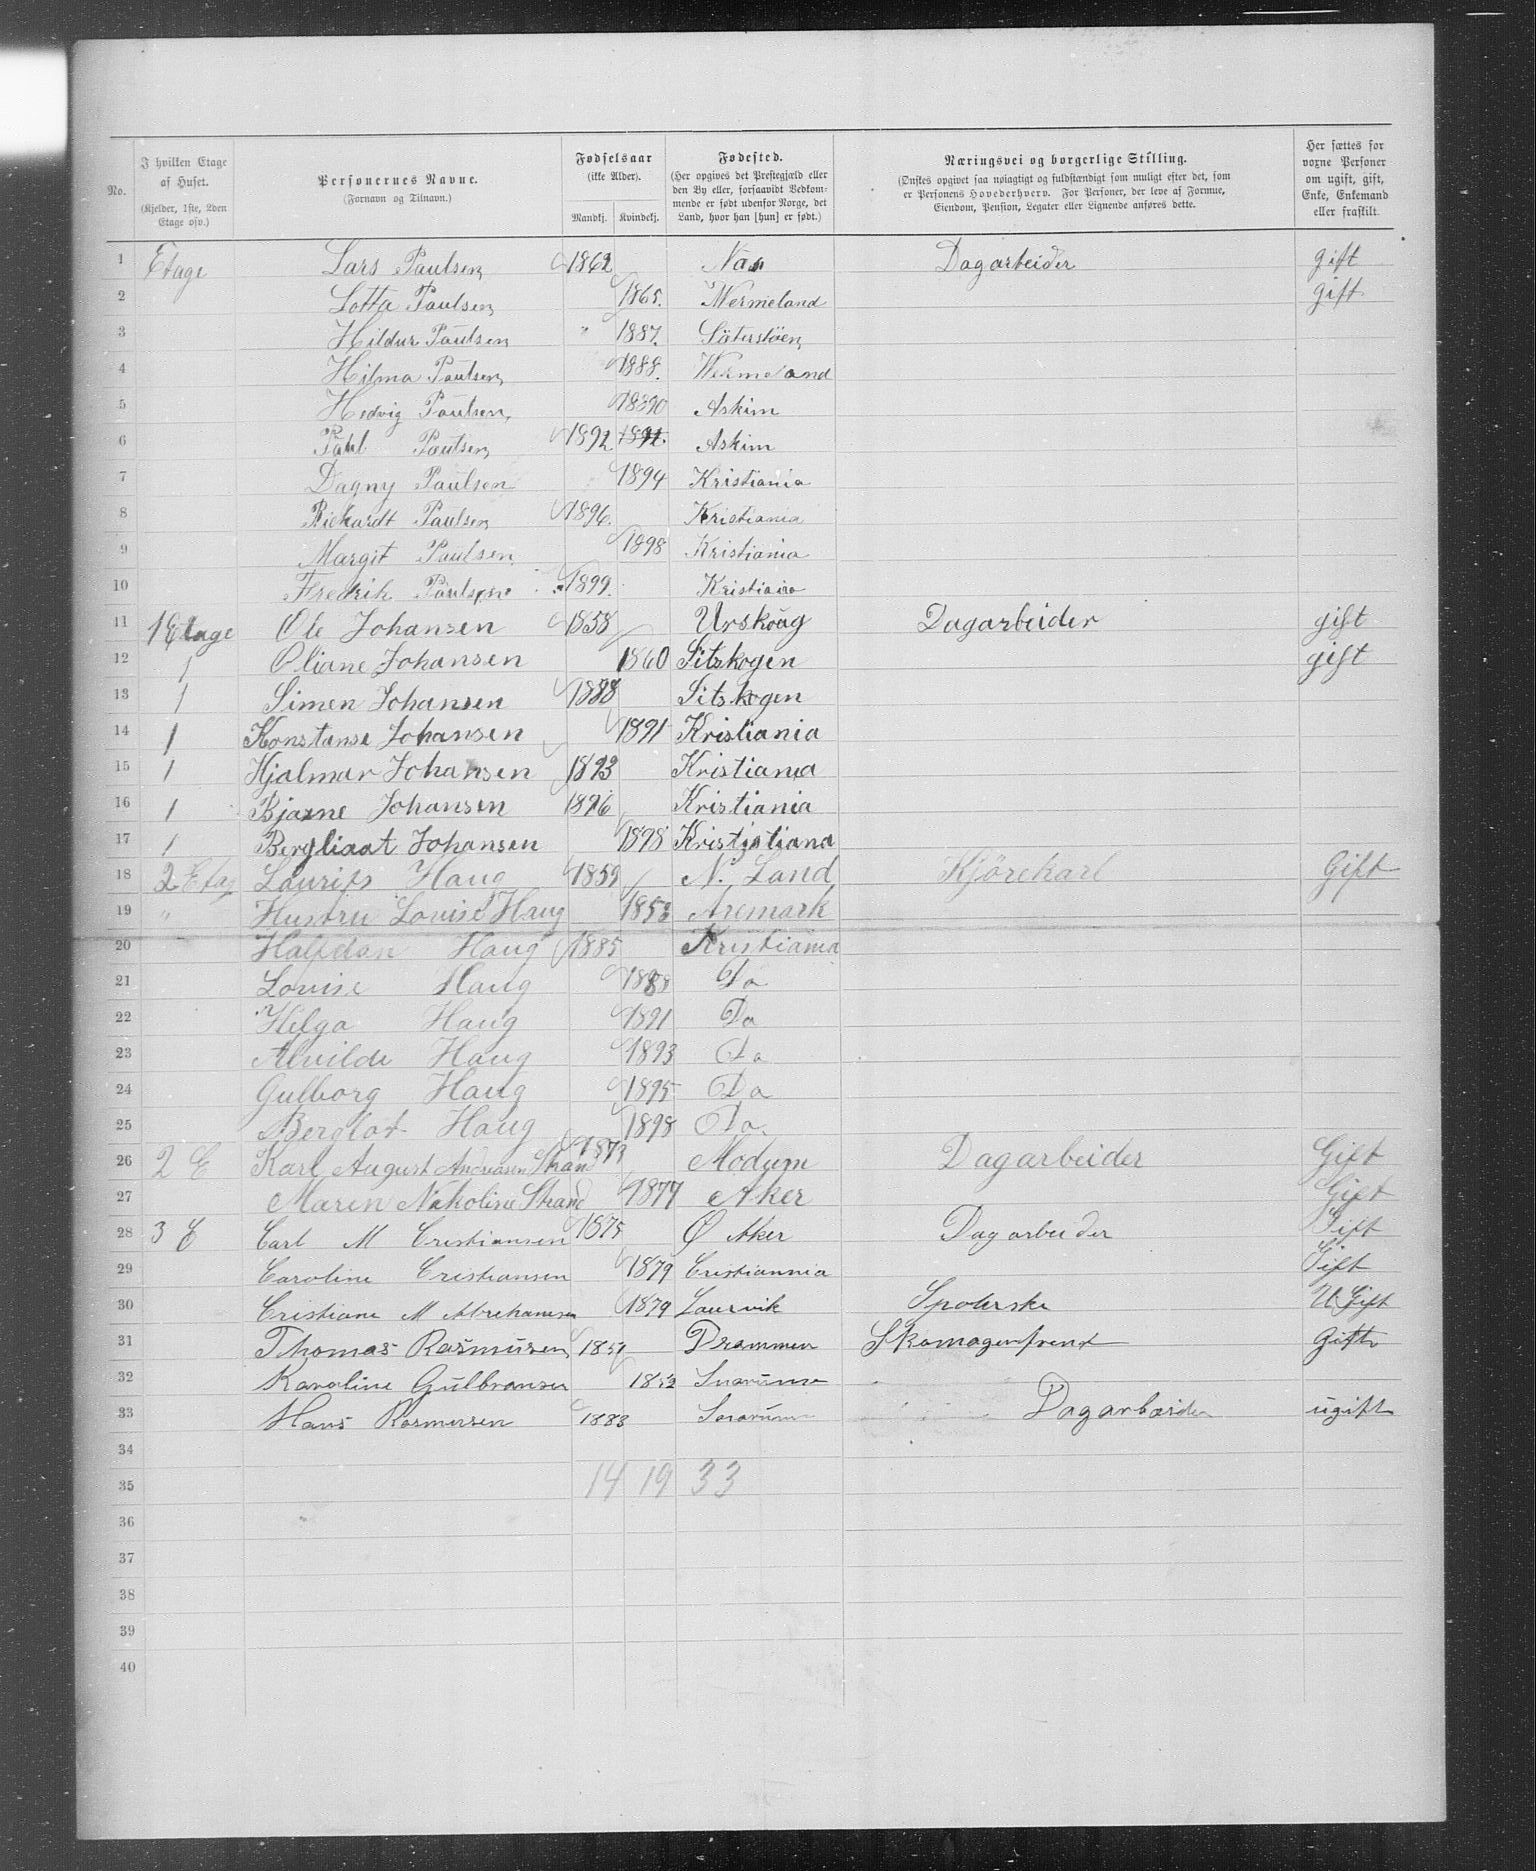 No. | I hvilken Etage af Huset. (Kjelder, 1ste, 2den Etage osv.) | Personernes Navne. (Fornavn og Tilnavn.) | Fødselsaar (ikke Alder). Mandkj. Kvindekj. | Fødested. (Her opgives det Prestegjæld eller den By eller, forsaavidt Vedkommende er født udenfor Norge, det Land, hvor han [hun] er født.) | Næringsvei og borgerlige Stilling. (Ønskes opgivet saa nøiagtigt og fuldstændigt som muligt efter det, som er Personens Hovederhverv. For Personer, der leve af Formue, Eiendom, Pension, Legater eller Lignende anføres dette.) | Her sættes for voxne Personer om ugift, gift, Enke, Enkemand eller fraskilt.
1 Etage Lars Paulsen 1862 Næs Dagarbeider gift
2 Lotta Paulsen 1865. Wermeland gift
3 Hildur Paulsen " 1887. Säterstöen
4 Hilma Paulsen 1888. Wermeland
5 Hedvig Paulsen, 1890 Askim
6 Paul Paulsen 1892 Askim
7 Dagny Paulsen 1894 Kristiania
8 Rickardt Paulsen 1896. Kristiania
9 Margit Paulsen 1898 Kristiania
10 Fredrik Paulsen 1899. Kristiania
11 1 Etage Ole Johansen 1858 Urskoug Dagarbeider gift
12 1 Oliane Johansen 1860 Sitskogen gift
13 1 Simen Johansen 1888 Sitskogen
14 1 Konstanse Johansen 1891 Kristiania
15 1 Hjalmar Johansen 1893 Kristiania
16 1 Bjarne Johansen 1896 Kristiania
17 1 Bergliaat Johansen 1898 Kristiatiana
18 2 Etag Laurits Haug 1859 N. Land Kjörekarl Gift
19 " Hustru Louise Haug 1853 Aremark
20 " Halfdan Haug 1885 Kristiania
21 Louise Haug 1888 Do
22 Helga Haug 1891 Do
23 Alvilde Haug 1893 Do
24 Gulborg Haug 1895 Do
25 Berglot Haug 1898 Do.
26 2 E Karl August Andreasen Strand 1873 Modum Dagarbeider Gift
27 Maren Nikoline Strand 1877 Aker Gift
28 3 E Carl M Cristiansen 1875 Ø Aker Dagarbeider Gift
29 Caroline Cristiansen 1879 Cristiannia Gift
30 Cristiane M Abrehamsen 1879 Laurvik Spolerske U Gift
31 Thomas Rasmusen 1851 Drammen Skomagersvend Gift
32 Karoline Gulbransen 1852 Snarumso
33 Hans Rasmusen 1883 Dagarbeider ugift
34
35 14 19 33
36
37
38
39
40